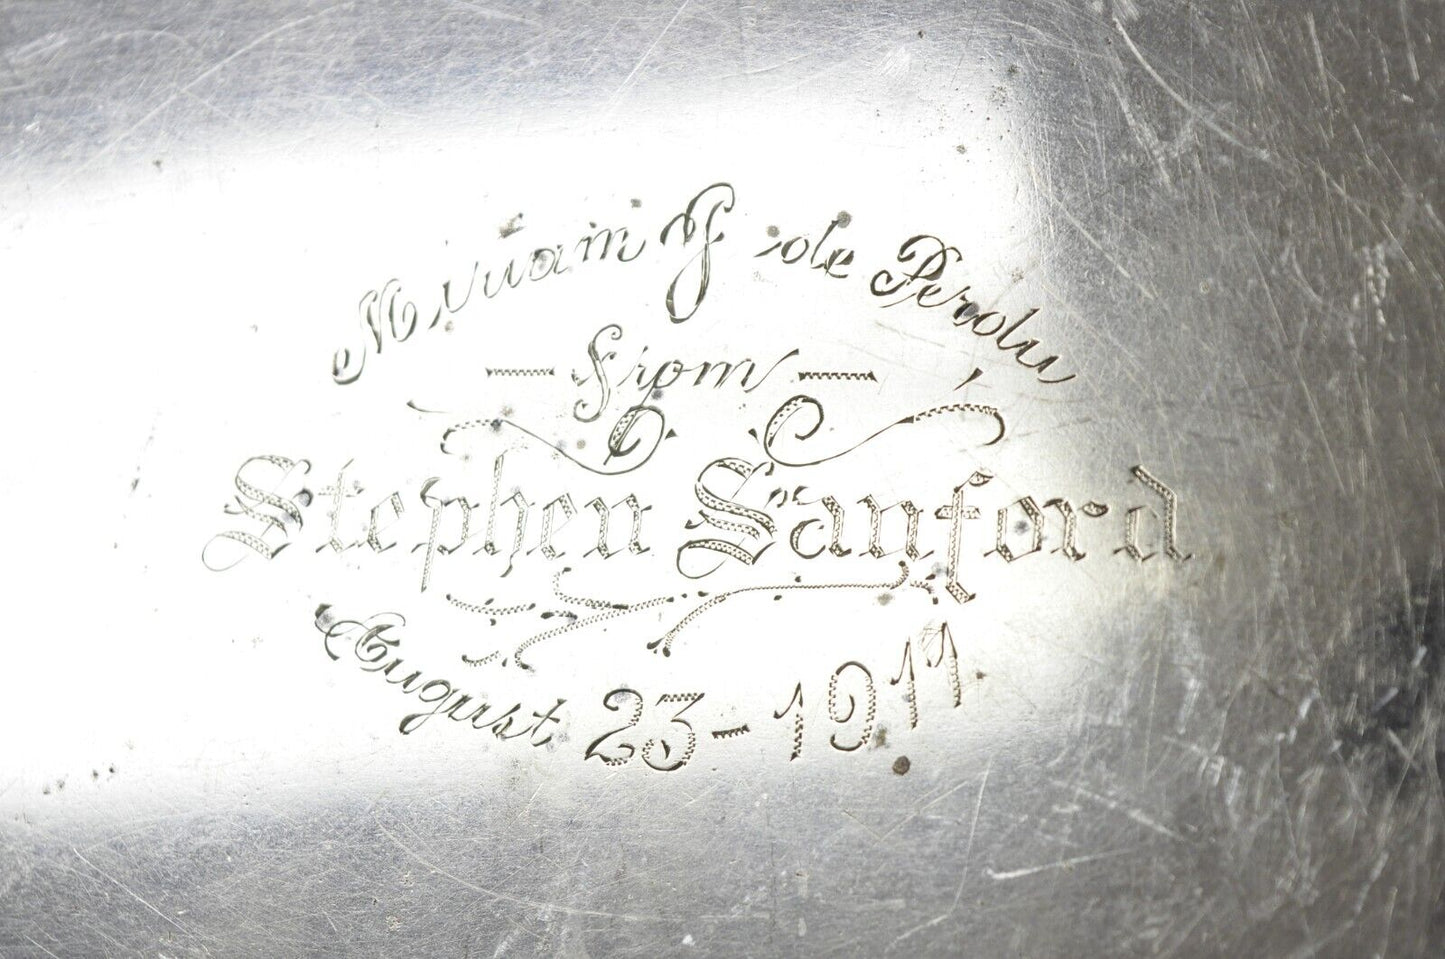 Miriam J de Perdu
- from -
Stephen Sanford
August 23-1911